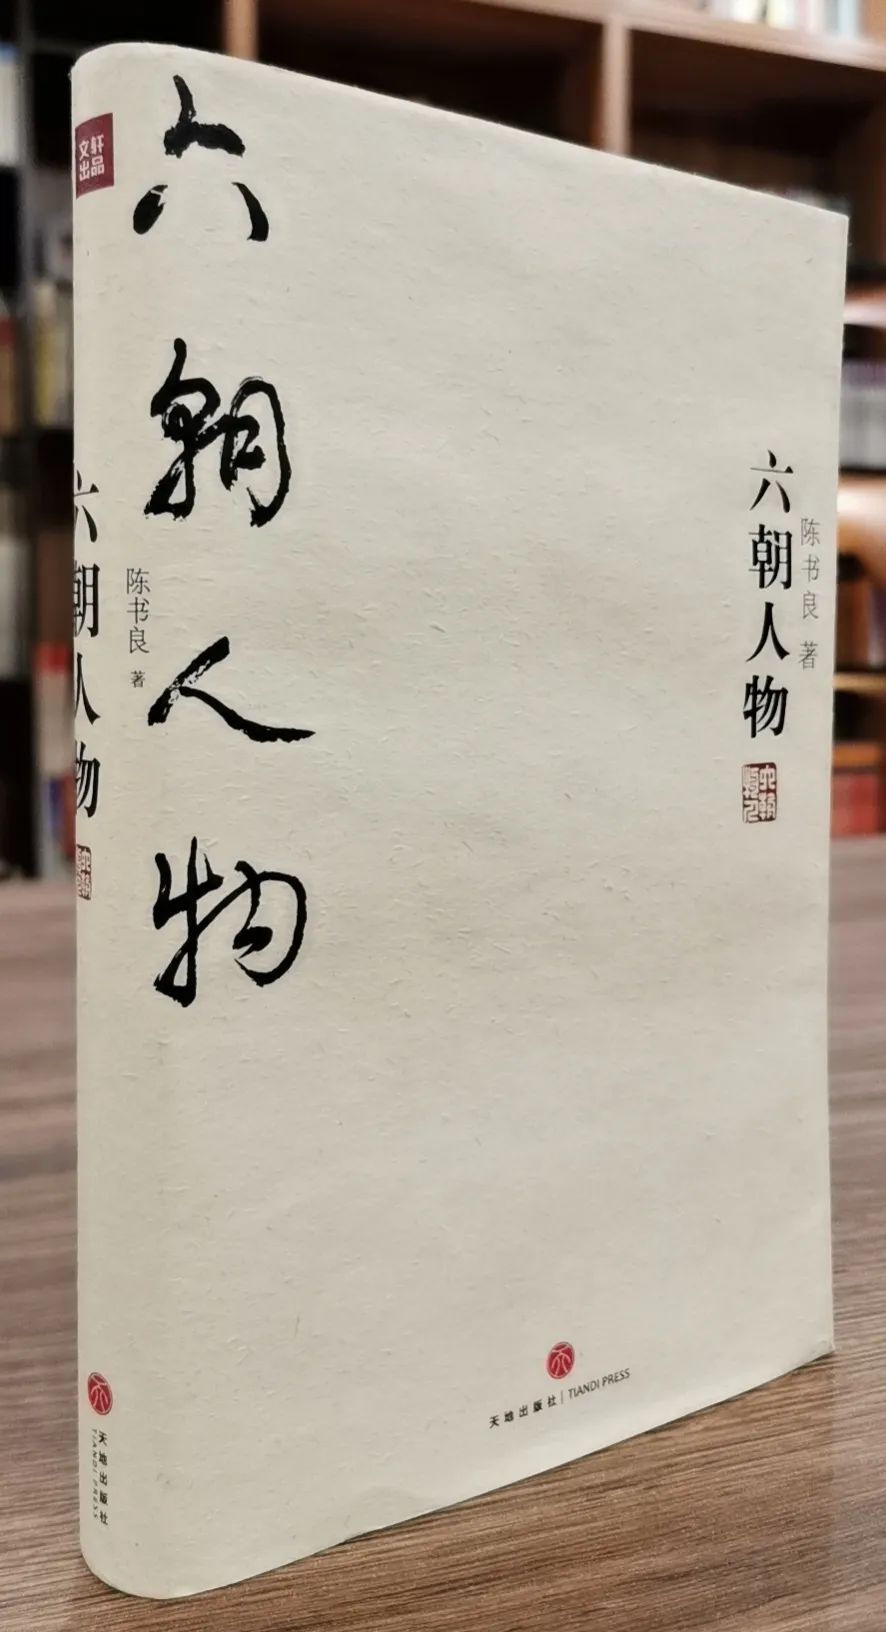 文轩
出品
六朝人物
陈书良 著
六朝人物
天地出版社
TIANDI PRESS
六朝人物
陈书良 著
天地出版社 | TIANDI PRESS